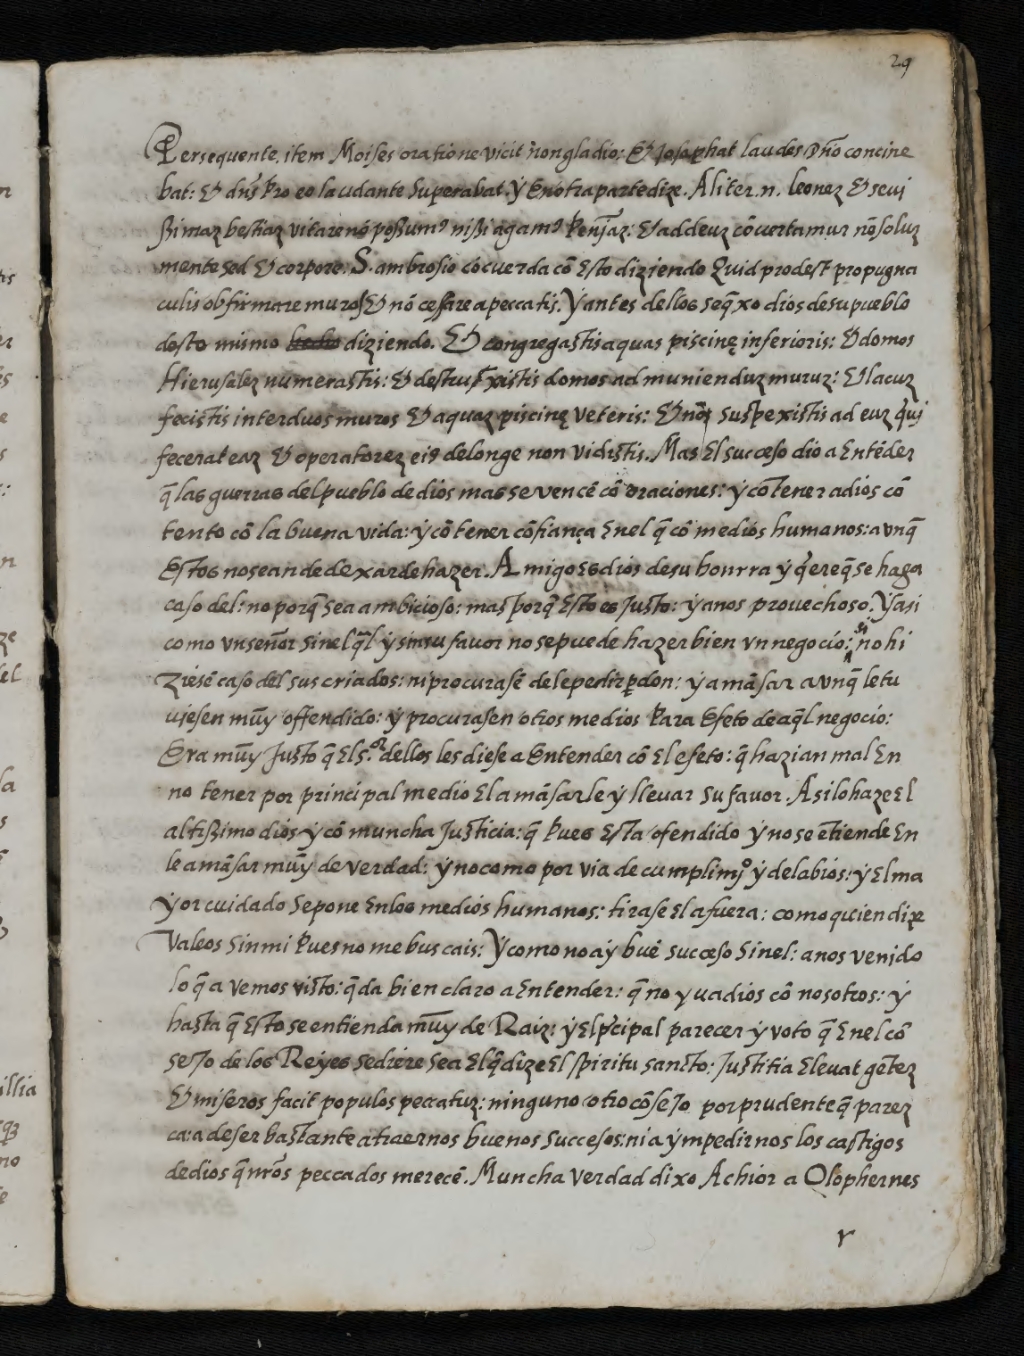 29
Persequente, item Moises oratione vicit nongladio: Et Josaphat laudes Dño concine
bat: Et dñs pro eo laudante superabat. ý En otra parte dize. Aliter .n. leonez Et seui
ßimaz bestiaz vitare nõ poßumꝰ nißi agamꝰ pen̄iaz: Et ad deuz cõuertamur nõ soluz
mente sed Et corpore. S. ambrosio cõcuerda cõ Esto diziendo Quid prodest propugna
culis obfirmare muros Et nõ cessare a peccatis. Y antes dellos se q̃xo dios de su pueblo
desto mismo diziendo. Et congregastis aquas piscinę inferioris: Et domos
Hierusalez numerastis: Et destruxistis domos ad munienduz muruz: Et lacuz
fecistis inter duos muros Et aquaz piscinę veteris: Et nõ suspexistis ad euz qui
fecerat eaz Et operatorez eiꝰ de longe non vidistis. Mas El succeso dio a Entẽder
q̃ las guerras del pueblo de dios mas se vencẽ cõ oraciones: ý cõ tener a dios cõ
tento cõ la buena vida: ý cõ tener cõfiança En el q̃ cõ medios humanos: aunq̃
Estos no sean de dexar de hazer. Amigo es dios de su honrra ý q̃ere q̃ se haga
caso del: no porq̃ sea ambicioso: mas porq̃ Esto es Justo: ý a nos provechoso. Y asi
como vn señor sin el q̃l ý sin su favor no se puede hazer bien vn negocio: si no hi
ziesẽ caso del sus criados: ni procurasẽ de le pedir p̱don: ý amãsar aunq̃ le tu
uiesen mũy offendido: ý procurasen otros medios para Efeto de aq̃l negocio:
Era mũy Justo q̃ El s.ᵒʳ dellos les diese a Entender cõ El efeto: q̃ hazian mal En
no tener por principal medio El amãsarle ý lleuar su favor. Asi lo haze El
altißimo dios ý cõ muncha Justicia: q̃ pues Esta ofendido ý no se ẽtiende En
le amãsar mũy de verdad: ý no como por via de cumplimᵒ ý de labios: ý El ma
yor cuidado se pone En los medios humanos: tirase El afuera: como quien dize
Valeos sin mi pues no me buscais: Y como no aý buẽ succeso sin el: a nos venido
lo q̃ avemos visto: q̃da bien claro a Entender: q̃ no yva dios cõ nosotros: ý
hasta q̃ Esto se entienda mũy de Raiz: ý El p̃cipal parecer ý voto q̃ En el cõ
seJo de los Reyes se diere sea El q̃ dize El spiritu sancto: Justitia Elevat gẽtez
Et miseros facit populos peccatuz: ninguno otro cõseJo por prudente q̃ parez
ca: a de ser bastante a traernos buenos succesos: ni a ýmpedirnos los castigos
de dios q̃ nr̃os peccados merecẽ. Muncha verdad dixo Achior a Olophernes